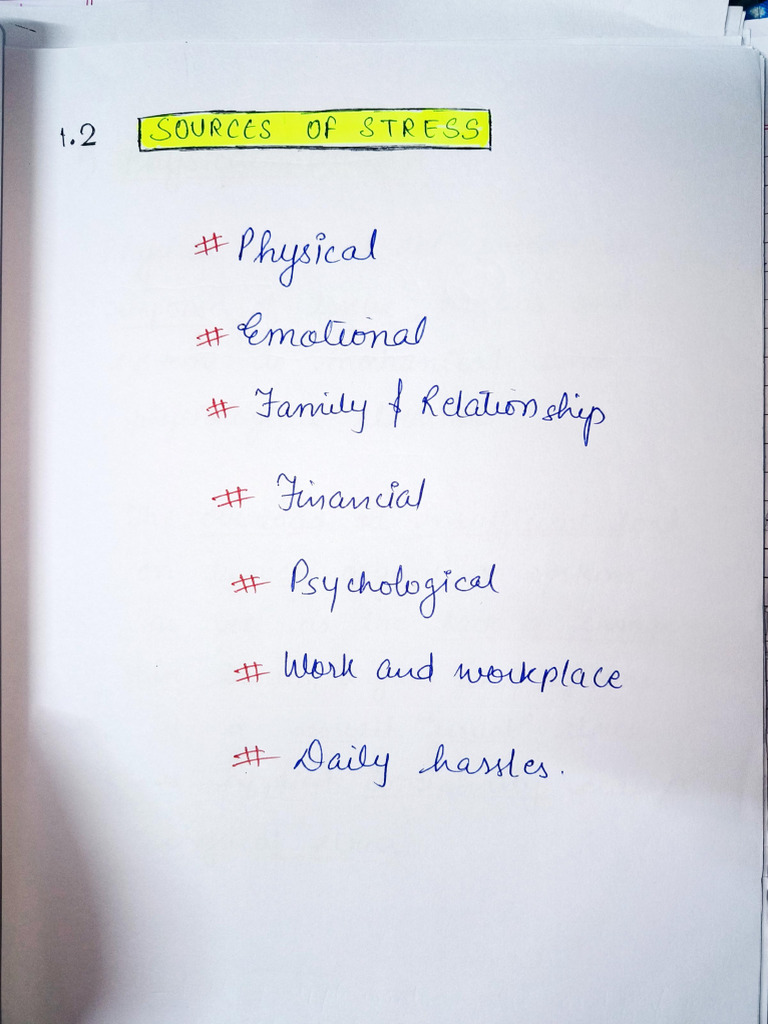 1.2 SOURCES OF STRESS
# Physical
# Emotional
# Family & Relationship
# Financial
# Psychological
# Work and workplace
# Daily hassles.